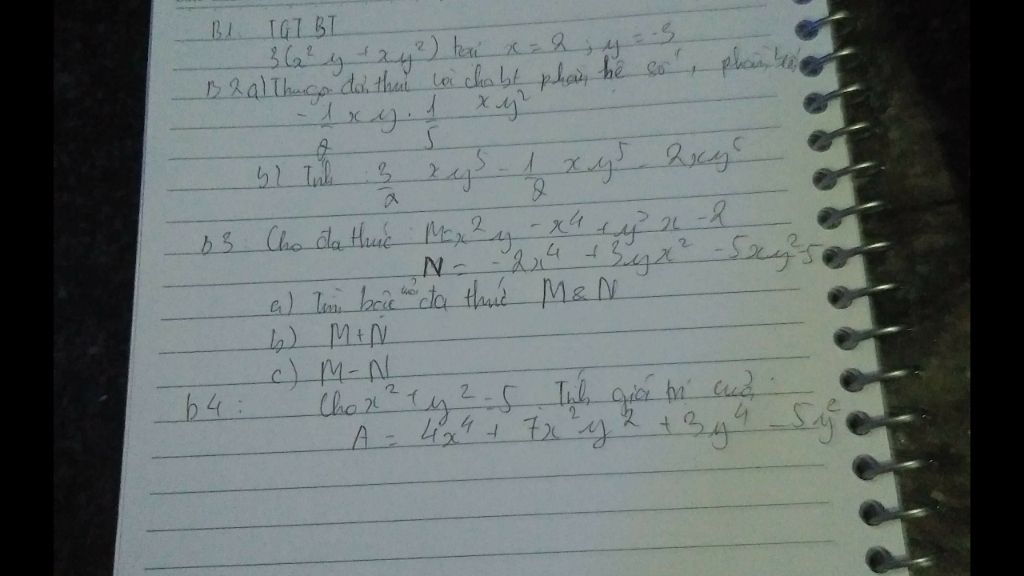 B1. TGTBT
3(x² y + xy²) tại x = 2 ; y = -3
B2 a) Thu gọn đơn thức rồi cho bt phần hệ số, phần biến
- 1/2 xy . 1/5 xy²
b) Tính 3/2 xy⁵ - 1/2 xy⁵ - 2xy⁵
b3 Cho đa thức M=x² y - x⁴ + y² x - 2
N = -2x⁴ + 3yx² - 5xy² - 5
a) Tìm bậc của đa thức M & N
b) M + N
c) M - N
b4 : Cho x² + y² = 5 Tính giá trị của :
A = 4x⁴ + 7x² y² + 3y⁴ - 5y²